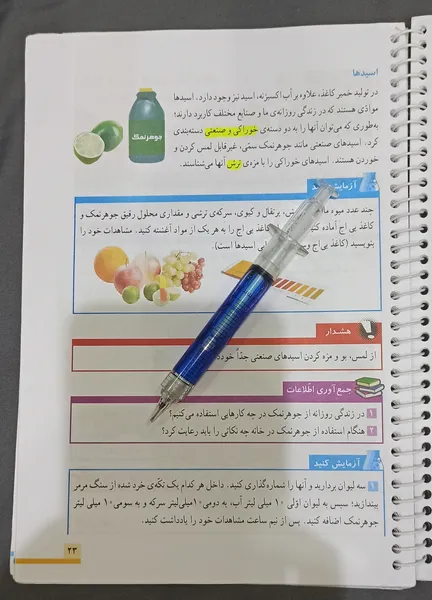 اسیدها
در تولید خمیر کاغذ، علاوه بر آب اکسیژنه، اسید نیز وجود دارد. اسیدها
موادّی هستند که در زندگی روزانه‌ی ما و صنایع مختلف کاربرد دارند؛
به‌طوری که می‌توان آنها را به دو دسته‌ی خوراکی و صنعتی دسته‌بندی
کرد. اسیدهای صنعتی مانند جوهرنمک سمّی، غیرقابل لمس کردن و
خوردن هستند. اسیدهای خوراکی را با مزه‌ی ترش آنها می‌شناسند.
جوهرنمک
آزمایش
چند عدد میوه پرتقال و کیوی، سرکه‌ی ترشی و مقداری محلول رقیق جوهرنمک و
کاغذ پی اچ آماده کاغذ پی اچ را به هر یک از مواد آغشته کنید. مشاهدات خود را
بنویسید (کاغذ پی اچ اسیدها است).
هشدار
از لمس، بو و مزه کردن اسیدهای صنعتی جدّاً
جمع آوری اطّلاعات
۱ در زندگی روزانه از جوهرنمک در چه کارهایی استفاده می‌کنیم؟
۲ هنگام استفاده از جوهرنمک در خانه چه نکاتی را باید رعایت کرد؟
آزمایش کنید
۱ سه لیوان بردارید و آنها را شماره‌گذاری کنید. داخل هر کدام یک تکّه‌ی خرد شده از سنگ مرمر
بیندازید؛ سپس به لیوان اوّلی ۱۰ میلی لیتر آب، به دومی ۱۰ میلی‌لیتر سرکه و به سومی ۱۰ میلی لیتر
جوهرنمک اضافه کنید. پس از نیم ساعت مشاهدات خود را یادداشت کنید.
۲۳